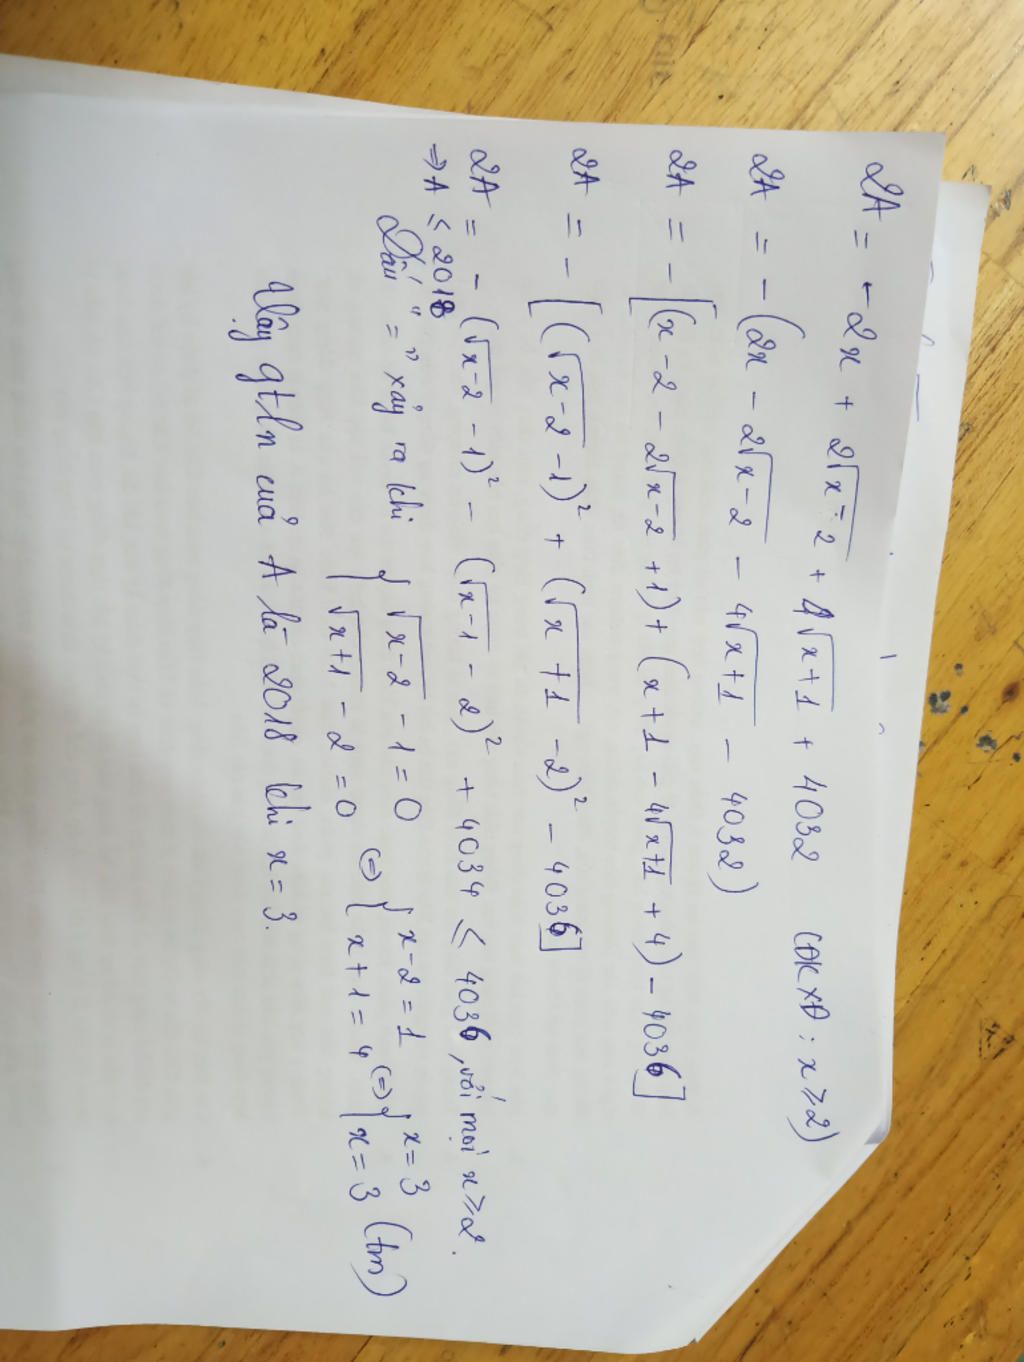 2A = -2x + 2√(x-2) + 4√(x+1) + 4032 (ĐKXĐ: x ≥ 2)
2A = -(2x - 2√(x-2) - 4√(x+1) - 4032)
2A = -[(x-2-2√(x-2)+1)+(x+1-4√(x+1)+4)-4036]
2A = -[(√(x-2)-1)² + (√(x+1)-2)² - 4036]
2A = -(√(x-2)-1)² - (√(x-1)-2)² + 4034 ≤ 4036, với mọi x ≥ 2.
⇒ A ≤ 2018
Dấu "=" xảy ra khi { √(x-2) - 1 = 0 { x-2 = 1 { x = 3
{ √(x+1) - 2 = 0 ⇔ { x+1 = 4 ⇔ { x = 3 (tm)
Vậy gtln của A là 2018 khi x = 3.